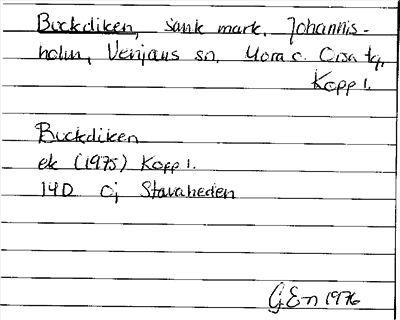 Buckdiken, sank mark, Johannis-
holm, Venjans sn, Mora o. Orsa tg,
Kopp l.
Buckdiken
ek (1975) Kopp l.
14D 0j Stavaheden
GEn 1976